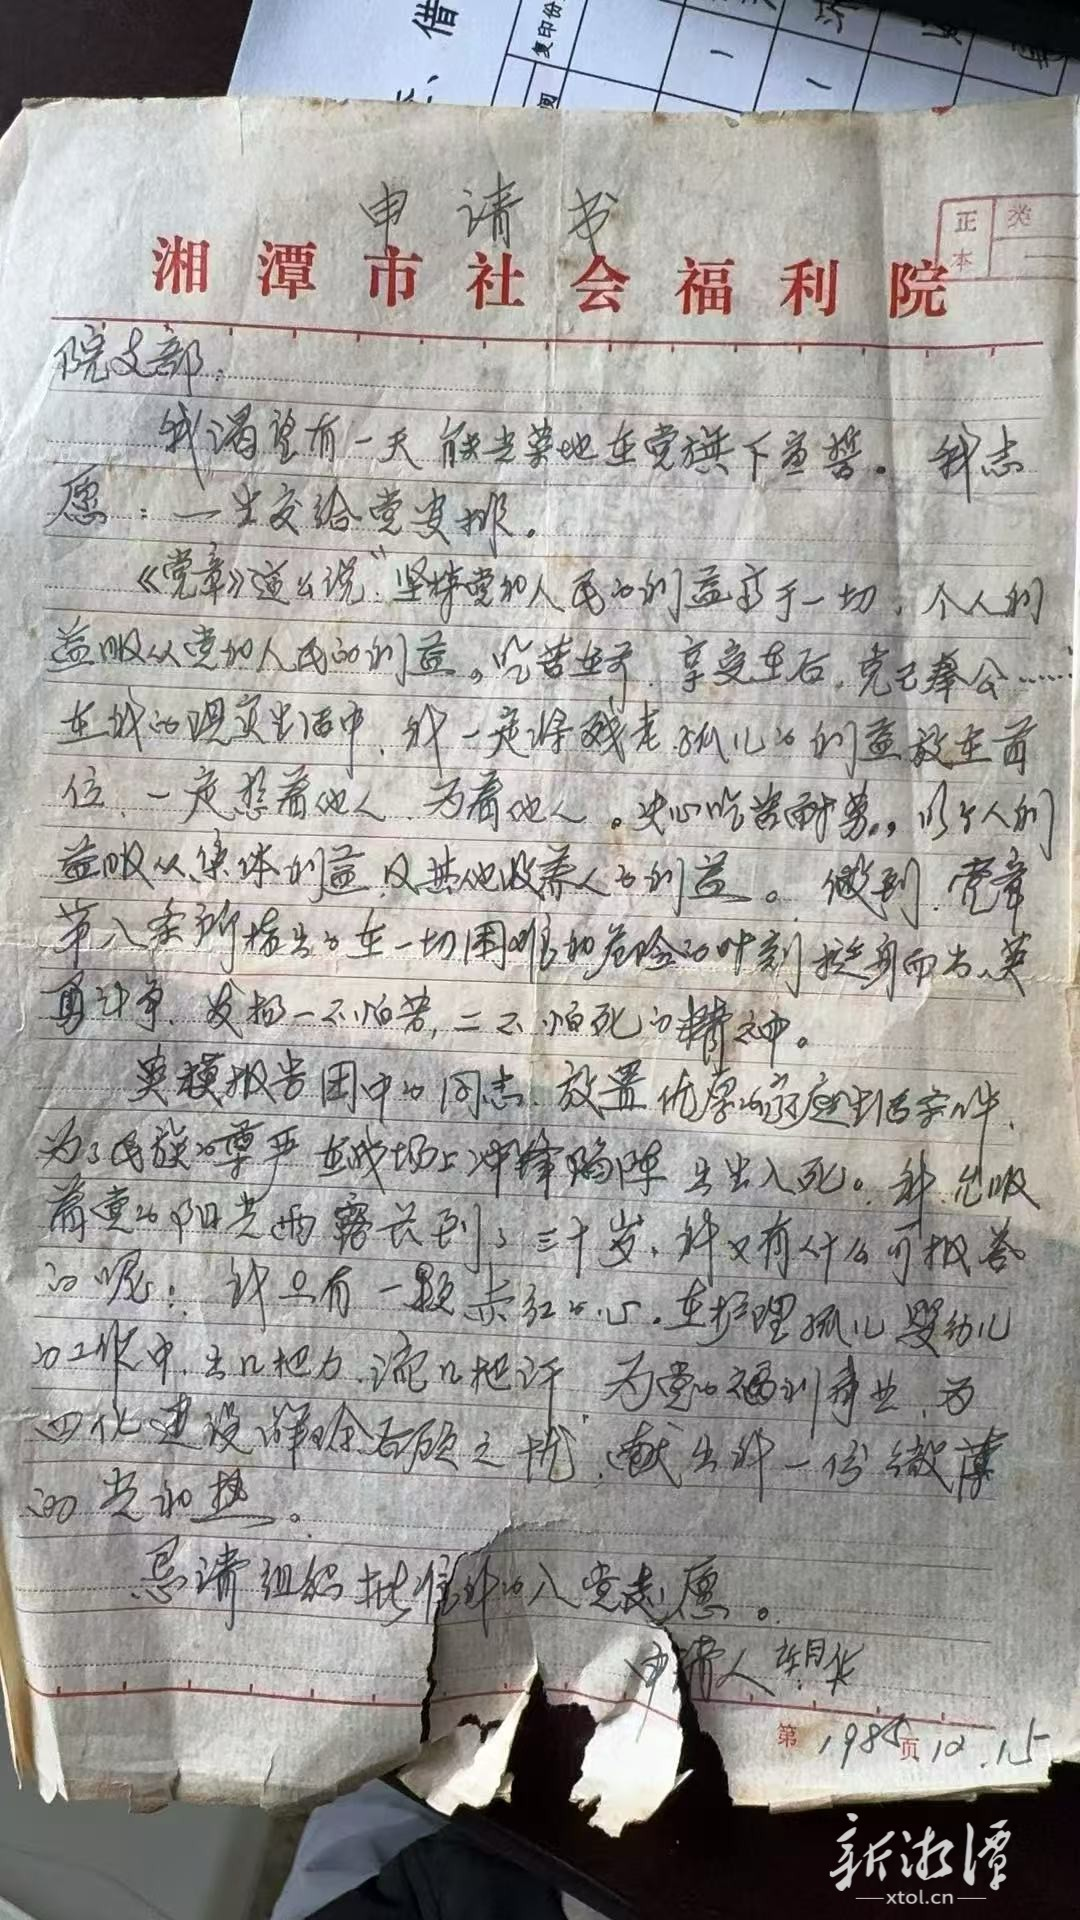 借
复印份
申请书
正本
类
湘潭市社会福利院
院支部：
我渴望有一天能光荣地在党旗下宣誓。我志
愿：一生交给党安排。
《党章》这么说"坚持党和人民的利益高于一切，个人利
益服从党和人民的利益。吃苦在前，享受在后，克己奉公……"
在我的现实生活中，我一定将残老孤儿的利益放在首
位，一定想着他人，为着他人。决心吃苦耐劳，以个人利
益服从集体利益及其他收养人的利益。做到党章
第八条所指出的在一切困难和危险的时刻挺身而出，英
勇斗争，发扬一不怕苦，二不怕死的精神。
英模报告团中的同志，放置优厚的家庭生活条件，
为了民族的尊严在战场上冲锋陷阵出生入死。我吮吸
着党的阳光雨露长到了三十岁，我又有什么可报答
的呢；我只有一颗赤红的心。在护理孤儿婴幼儿
的工作中，出几把力，流几把汗，为党的福利事业，为
四化建设解除后顾之忧，献出我一份微薄
的光和热。
恳请组织批准我的入党志愿。
申请人 月华
第 页 1985 10.15
新湘潭
xtol.cn